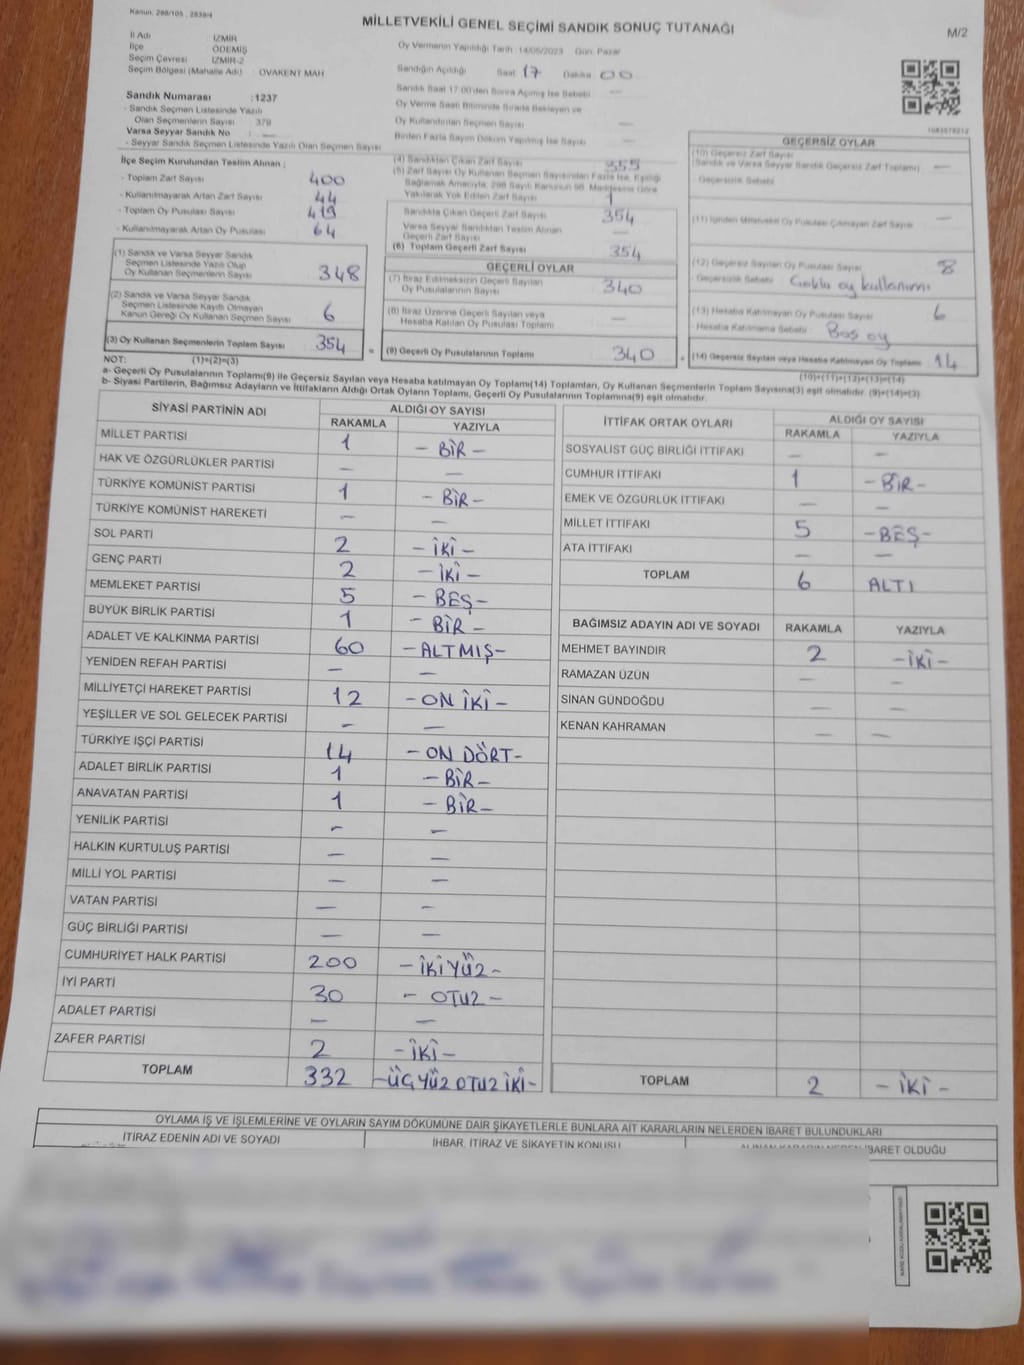 Kanun: 298/105 : 2839/4
MİLLETVEKİLİ GENEL SEÇİMİ SANDIK SONUÇ TUTANAĞI
M/2
İl Adı : İZMİR
İlçe : ÖDEMİŞ
Seçim Çevresi : İZMİR-2
Seçim Bölgesi (Mahalle Adı) : OVAKENT MAH
Sandık Numarası : 1237
- Sandık Seçmen Listesinde Yazılı
Olan Seçmenlerin Sayısı : 379
Varsa Seyyar Sandık No : —
- Seyyar Sandık Seçmen Listesinde Yazılı Olan Seçmen Sayısı
Oy Vermenin Yapıldığı Tarih : 14/05/2023 Gün: Pazar
Sandığın Açıldığı Saat 17 Dakika 00
Sandık Saat 17:00'den Sonra Açılmış İse Sebebi —
Oy Verme Saati Bitiminde Sırada Bekleyen ve
Oy Kullandırılan Seçmen Sayısı —
Birden Fazla Sayım Döküm Yapılmış İse Sayısı —
İlçe Seçim Kurulundan Teslim Alınan ;
- Toplam Zarf Sayısı 400
- Kullanılmayarak Artan Zarf Sayısı 44
- Toplam Oy Pusulası Sayısı 419
- Kullanılmayarak Artan Oy Pusulası 64
(1) Sandık ve Varsa Seyyar Sandık
Seçmen Listesinde Yazılı Olup
Oy Kullanan Seçmenlerin Sayısı 348
(2) Sandık ve Varsa Seyyar Sandık
Seçmen Listesinde Kayıtlı Olmayan
Kanun Gereği Oy Kullanan Seçmen Sayısı 6
(3) Oy Kullanan Seçmenlerin Toplam Sayısı 354
(4) Sandıktan Çıkan Zarf Sayısı 355
(5) Zarf Sayısı Oy Kullanan Seçmen Sayısından Fazla İse, Eşitliği
Sağlamak Amacıyla, 298 Sayılı Kanunun 98. Maddesine Göre
Yakılarak Yok Edilen Zarf Sayısı 1
Sandıkta Çıkan Geçerli Zarf Sayısı 354
Varsa Seyyar Sandıktan Teslim Alınan
Geçerli Zarf Sayısı —
(6) Toplam Geçerli Zarf Sayısı 354
GEÇERLİ OYLAR
(7) İtiraz Edilmeksizin Geçerli Sayılan
Oy Pusulalarının Sayısı 340
(8) İtiraz Üzerine Geçerli Sayılan veya
Hesaba Katılan Oy Pusulası Toplamı —
= (9) Geçerli Oy Pusulalarının Toplamı 340
1083578212
GEÇERSİZ OYLAR
(10) Geçersiz Zarf Sayısı
(Sandık ve Varsa Seyyar Sandık Geçersiz Zarf Toplamı) —
- Geçersizlik Sebebi
(11) İçinden Milletvekili Oy Pusulası Çıkmayan Zarf Sayısı —
(12) Geçersiz Sayılan Oy Pusulası Sayısı 8
- Geçersizlik Sebebi Çoklu oy kullanımı
(13) Hesaba Katılmayan Oy Pusulası Sayısı 6
Hesaba Katılmama Sebebi Boş oy
+ (14) Geçersiz Sayılan veya Hesaba Katılmayan Oy Toplamı 14
NOT: (1)+(2)=(3)
(10)+(11)+(12)+(13)=(14)
a- Geçerli Oy Pusulalarının Toplamı(9) ile Geçersiz Sayılan veya Hesaba katılmayan Oy Toplamı(14) Toplamları, Oy Kullanan Seçmenlerin Toplam Sayısına(3) eşit olmalıdır. (9)+(14)=(3)
b- Siyasi Partilerin, Bağımsız Adayların ve İttifakların Aldığı Ortak Oyların Toplamı, Geçerli Oy Pusulalarının Toplamına(9) eşit olmalıdır.
SİYASİ PARTİNİN ADI ALDIĞI OY SAYISI
RAKAMLA YAZIYLA
MİLLET PARTİSİ 1 - BİR -
HAK VE ÖZGÜRLÜKLER PARTİSİ — —
TÜRKİYE KOMÜNİST PARTİSİ 1 - BİR -
TÜRKİYE KOMÜNİST HAREKETİ — —
SOL PARTİ 2 - İKİ -
GENÇ PARTİ 2 - İKİ -
MEMLEKET PARTİSİ 5 - BEŞ -
BÜYÜK BİRLİK PARTİSİ 1 - BİR -
ADALET VE KALKINMA PARTİSİ 60 - ALTMIŞ -
YENİDEN REFAH PARTİSİ — —
MİLLİYETÇİ HAREKET PARTİSİ 12 - ON İKİ -
YEŞİLLER VE SOL GELECEK PARTİSİ — —
TÜRKİYE İŞÇİ PARTİSİ 14 - ON DÖRT -
ADALET BİRLİK PARTİSİ 1 - BİR -
ANAVATAN PARTİSİ 1 - BİR -
YENİLİK PARTİSİ — —
HALKIN KURTULUŞ PARTİSİ — —
MİLLİ YOL PARTİSİ — —
VATAN PARTİSİ — —
GÜÇ BİRLİĞİ PARTİSİ — —
CUMHURİYET HALK PARTİSİ 200 - İKİYÜZ -
İYİ PARTİ 30 - OTUZ -
ADALET PARTİSİ — —
ZAFER PARTİSİ 2 - İKİ -
TOPLAM 332 - ÜÇYÜZ OTUZ İKİ -
İTTİFAK ORTAK OYLARI ALDIĞI OY SAYISI
RAKAMLA YAZIYLA
SOSYALİST GÜÇ BİRLİĞİ İTTİFAKI — —
CUMHUR İTTİFAKI 1 - BİR -
EMEK VE ÖZGÜRLÜK İTTİFAKI — —
MİLLET İTTİFAKI 5 - BEŞ -
ATA İTTİFAKI — —
TOPLAM 6 ALTI
BAĞIMSIZ ADAYIN ADI VE SOYADI RAKAMLA YAZIYLA
MEHMET BAYINDIR 2 - İKİ -
RAMAZAN ÜZÜN — —
SİNAN GÜNDOĞDU — —
KENAN KAHRAMAN — —
TOPLAM 2 - İKİ -
OYLAMA İŞ VE İŞLEMLERİNE VE OYLARIN SAYIM DÖKÜMÜNE DAİR ŞİKAYETLERLE BUNLARA AİT KARARLARIN NELERDEN İBARET BULUNDUKLARI
İTİRAZ EDENİN ADI VE SOYADI İHBAR, İTİRAZ VE ŞİKAYETİN KONUSU ALINAN KARARIN NEDEN İBARET OLDUĞU